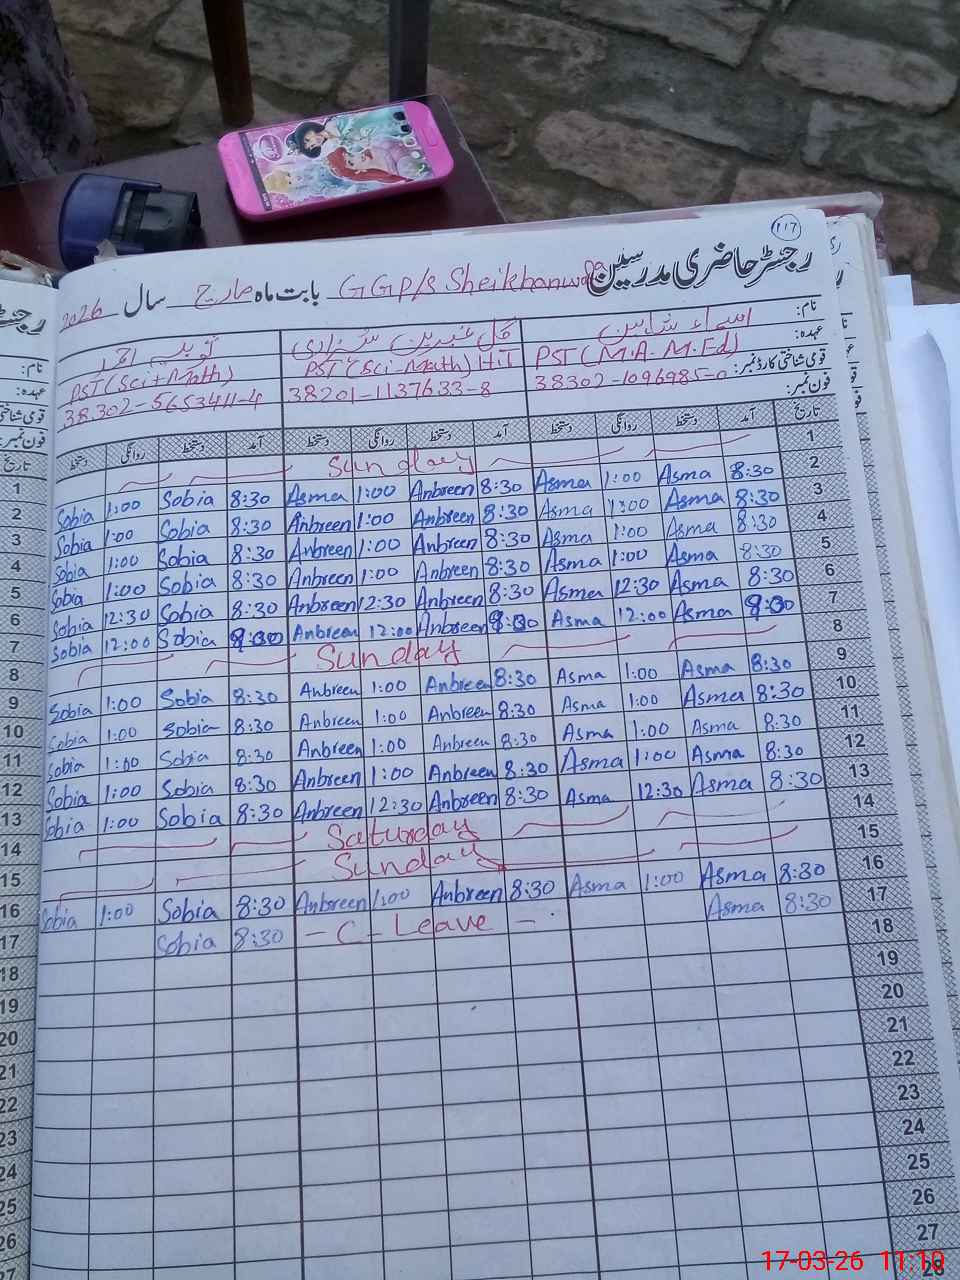 117
رجسٹر حاضری مدرسین
GGP/S Sheikhanwala بابت ماہ مارچ سال 2026
نام: اسماء شاہین
عہدہ: PST (M.A. M.Ed) PST (Sci-Math) H.T PST (Sci+Math)
قومی شناختی کارڈ نمبر: 38302-1096985-0 38201-1137633-8 38302-5653411-4
فون نمبر:
تاریخ آمد دستخط روانگی دستخط آمد دستخط روانگی دستخط آمد دستخط روانگی دستخط
1 Sunday
Sobia 1:00 Sobia 8:30 Asma 1:00 Anbreen 8:30 Asma 1:00 Asma 8:30 2
Sobia 1:00 Sobia 8:30 Anbreen 1:00 Anbreen 8:30 Asma 1:00 Asma 8:30 3
Sobia 1:00 Sobia 8:30 Anbreen 1:00 Anbreen 8:30 Asma 1:00 Asma 8:30 4
Sobia 1:00 Sobia 8:30 Anbreen 1:00 Anbreen 8:30 Asma 1:00 Asma 8:30 5
Sobia 12:30 Sobia 8:30 Anbreen 12:30 Anbreen 8:30 Asma 12:30 Asma 8:30 6
Sobia 12:00 Sobia 9:00 Anbreen 12:00 Anbreen 9:00 Asma 12:00 Asma 9:00 7
Sunday 8
Sobia 1:00 Sobia 8:30 Anbreen 1:00 Anbreen 8:30 Asma 1:00 Asma 8:30 9
Sobia 1:00 Sobia 8:30 Anbreen 1:00 Anbreen 8:30 Asma 1:00 Asma 8:30 10
Sobia 1:00 Sobia 8:30 Anbreen 1:00 Anbreen 8:30 Asma 1:00 Asma 8:30 11
Sobia 1:00 Sobia 8:30 Anbreen 1:00 Anbreen 8:30 Asma 1:00 Asma 8:30 12
Sobia 1:00 Sobia 8:30 Anbreen 12:30 Anbreen 8:30 Asma 12:30 Asma 8:30 13
Saturday 14
Sunday 15
Sobia 1:00 Sobia 8:30 Anbreen 1:00 Anbreen 8:30 Asma 1:00 Asma 8:30 16
Sobia 8:30 - C - Leave - Asma 8:30 17
18
19
20
21
22
23
24
25
26
27
28
17-03-26 11:10